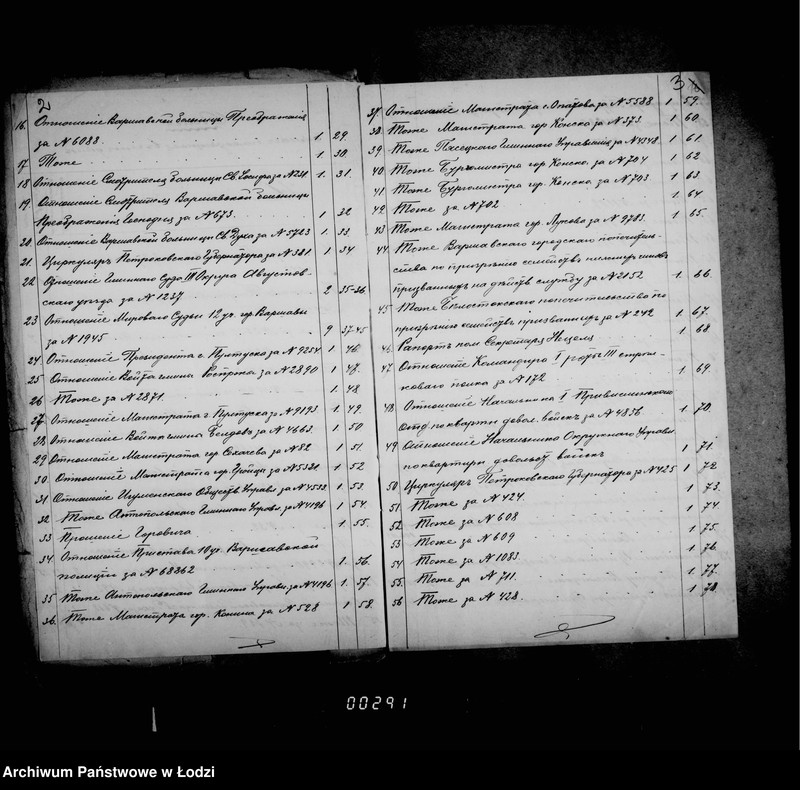 2
16. Отношеніе Варшавской больницы Преображенія
за № 6088 1 29
17 Тоже 1 30.
18 Отношеніе Смотрителя больницы Св. за № 1. 31.
19. Отношеніе Смотрителя Варшавской больницы
Преображенія Господня за № 673. 1 32
20 Отношеніе Варшавской больницы Св. Духа за № 5723 1 33.
21. Циркуляръ Петроковскаго Губернатора за № 381 1 34
22 Отношеніе Гминнаго Суда III Округа Августов-
скаго уѣзда за № 1237 2 35-36
23 Отношеніе Мирового Судьи 12 уч. гор. Варшавы
за № 1945 9 37-45
24. Отношеніе Президента г. Пултуска за № 9254 1 46.
25 Отношеніе Войта гмины за № 2890 1 47.
26 Тоже за № 2871. 1. 48.
27. Отношеніе Магистрата г. Пултуска за № 9193 1 49.
28. Отношеніе Войта гмины за № 4663. 1. 50
29 Отношеніе Магистрата гор. за № 82 1 51.
30 Отношеніе Магистрата гор. за № 5331 1 52
31 Отношеніе Обществ. Управл. за № 4532 1 53
32 Тоже Антопольскаго Гминнаго Управл. за № 4196 1 54.
33 Прошеніе Горовича 1 55.
34 Отношеніе Пристава 10 уч. Варшавской
полиціи за № 68362 1. 56.
35 Тоже Антопольскаго Гминнаго Управл. за № 4196 1. 57.
36. Тоже Магистрата гор. Конина за № 528 1 58.
3
37. Отношеніе Магистрата г. за № 5588 1 59.
38 Тоже Магистрата гор. Конска за № 573 1 60.
39 Тоже Гминнаго Управленія за № 4348 1 61
40 Тоже Бургомистра гор. Конска за № 704 1 62
41 Тоже Бургомистра гор. Конска за № 703 1 63
42 Тоже за № 702 1 64
43 Тоже Магистрата гор. Лукова за № 9783. 1 65.
44. Тоже Варшавскаго городскаго попечитель-
ства по призрѣнію семействъ нижнихъ чиновъ
призванныхъ на дѣйств. службу за № 2152 1. 66
45 Тоже Бѣлостокскаго попечительства по
призрѣнію семействъ призванныхъ за № 242 1 67.
46. Рапортъ пом. Секретаря 1 68.
47. Отношеніе Командира I роты III стрѣл-
коваго полка за № 172 1. 69
48 Отношеніе Начальника I Привислинскаго
отд. по кварт. довол. войскъ за № 4836 1 70.
49 Отношеніе Начальника Окружнаго Управл.
по квартирн. довольств. войскъ 1 71.
50 Циркуляръ Петроковскаго Губернатора за № 425 1 72.
51 Тоже за № 424. 1 73.
52 Тоже за № 608 1 74
53 Тоже за № 609 1 75.
54 Тоже за № 1083. 1 76.
55. Тоже за № 711. 1 77
56 Тоже за № 428. 1 78.
00291
Archiwum Państwowe w Łodzi